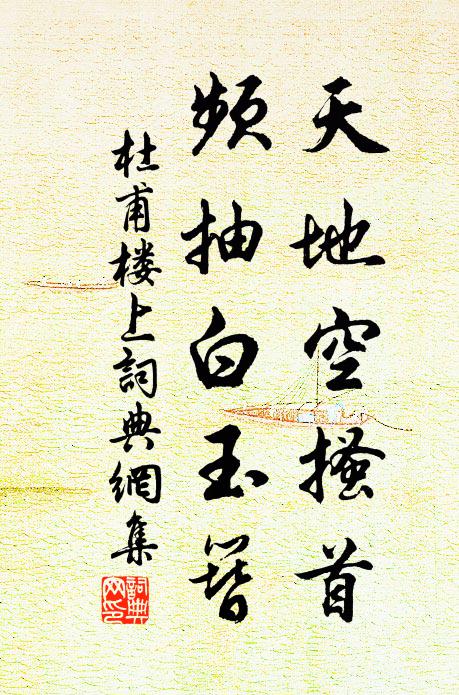 天地空搔首
频抽白玉簪
杜甫楼上詞典網集
詞典网印